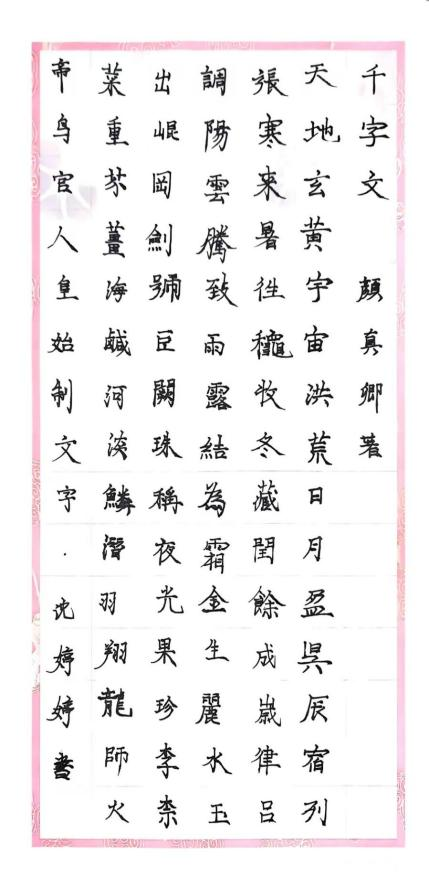 千字文 顏真卿著
天地玄黄宇宙洪荒日月盈昃辰宿列
張寒来暑往龝收冬藏閏餘成歲律吕
調陽雲騰致雨露結為霜金生麗水玉
出崐岡劍號巨闕珠稱夜光果珍李柰
菜重芥薑海鹹河淡鱗潛羽翔龍師火
帝鸟官人皇始制文字.沈婷婷書